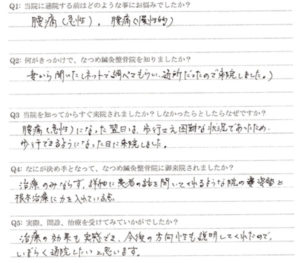 Q1: 当院に通院する前はどのような事にお悩みでしたか?
腰痛(急性)、腰痛(慢性的)
Q2: 何がきっかけで、なつめ鍼灸整骨院を知りましたか?
妻から聞いた(ネットで調べてもらい、近所だったので来院しました。)
Q3 当院を知ってからすぐ来院されましたか?しなかったとしたらなぜですか?
腰痛(急性)になった翌日は、歩行さえ困難な状況であったため、
歩けるようになった日に来院しました。
Q4: なにが決め手となって、なつめ鍼灸整骨院に御来院されましたか?
治療のみならず、詳細に患者の話を聞いてくれるような院の雰囲気と
根本治療に力を入れている点
Q5: 実際、問診、治療を受けてみていかがでしたか?
治療の効果も実感でき、今後の方向性も説明してくれたので、
しばらく通院したいと思います。